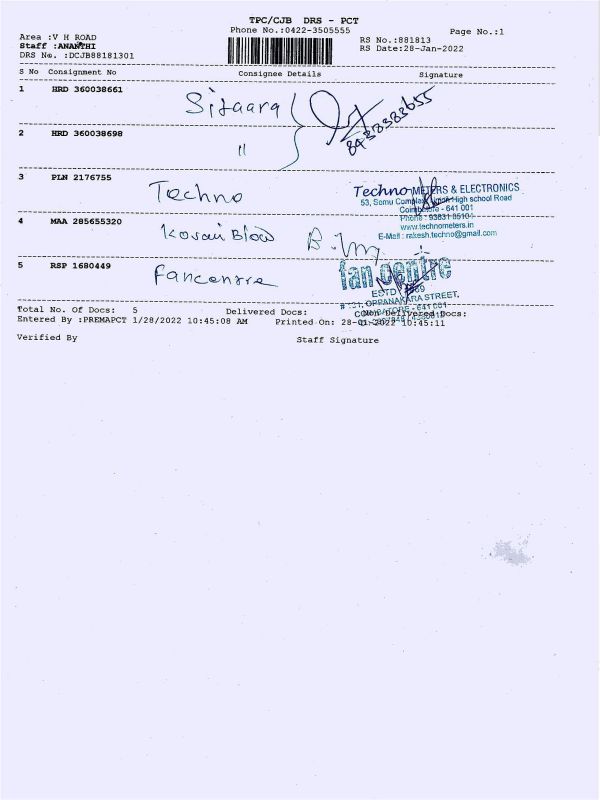 TPC/CJB DRS - PCT
Phone No.:0422-3505555
Page No.:1
Area :V H ROAD
RS No.:881813
Staff :ANANTHI
RS Date:28-Jan-2022
DRS No. :DCJB88181301
S No Consignment No Consignee Details Signature
1 HRD 360038661 Sitaara
8438383655
2 HRD 360038698 "
3 PLN 2176755 Techno
Techno METERS & ELECTRONICS
53, Somu Complex, High school Road
Coimbatore - 641 001
Phone : 93631 85104
www.technometers.in
E-Mail : rakesh.techno@gmail.com
4 MAA 285655320 Kovai Blood
5 RSP 1680449 Fancentre
fan centre
ESTD
OPPANAKARA STREET,
COIMBATORE - 641 001
Total No. Of Docs: 5 Delivered Docs: Non Delivered Docs:
Entered By :PREMAPCT 1/28/2022 10:45:08 AM Printed On: 28-01-2022 10:45:11
Verified By Staff Signature